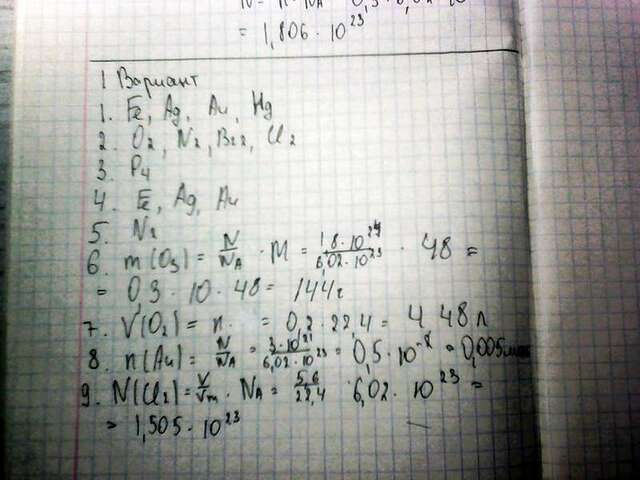 = 1,806 · 10^23
1 Вариант
1. Fe, Ag, Au, Hg
2. O2, N2, Br2, Cl2
3. P4
4. Fe, Ag, Au
5. N2
6. m(O3) = N/NA · M = 1,8·10^24/6,02·10^23 · 48 =
= 0,3 · 10 · 48 = 144г
7. V(O2) = n · = 0,2 · 22,4 = 4,48 л
8. n(Au) = N/NA = 3·10^21/6,02·10^23 = 0,5 · 10^-8 = 0,005
9. N(Cl2) = V/Vm · NA = 5,6/22,4 · 6,02 · 10^23 =
= 1,505 · 10^23